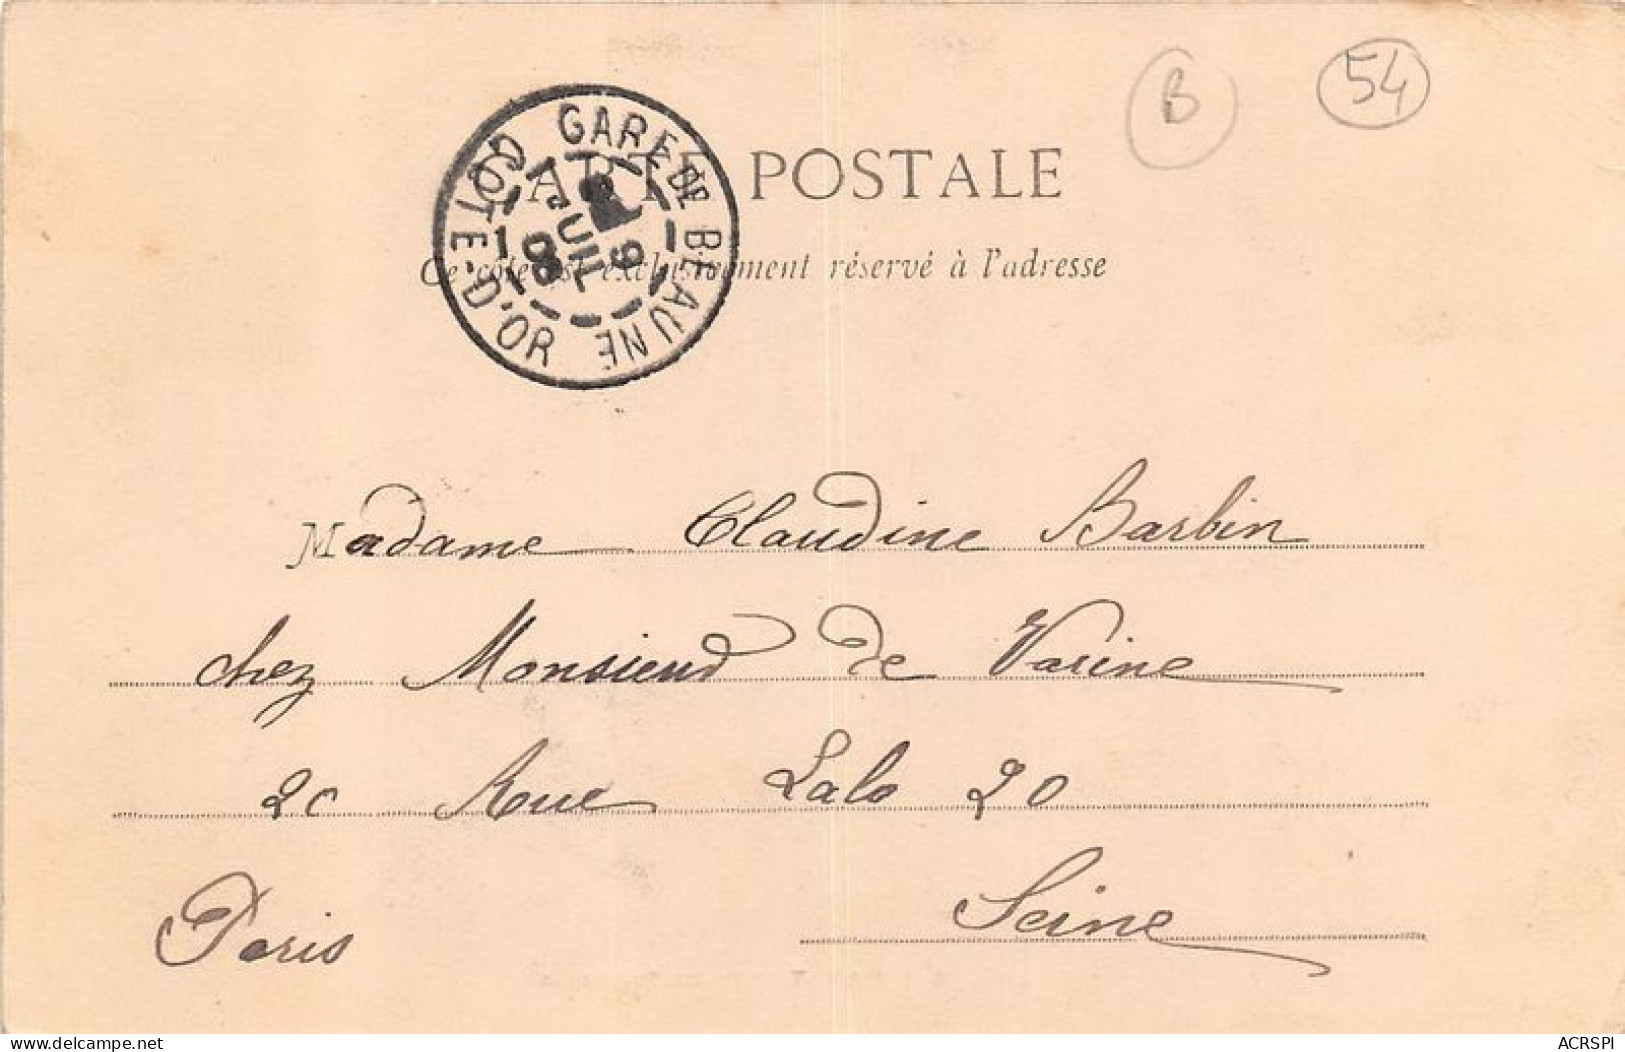 B
54
CARTE POSTALE
Ce côté est exclusivement réservé à l'adresse
GARE DE BEAUNE
COTE-D'OR
JUIL
Madame Claudine Barbin
chez Monsieur de Varine
20 Rue Lalo 20
Paris
Seine
delcampe.net
ACRSPI